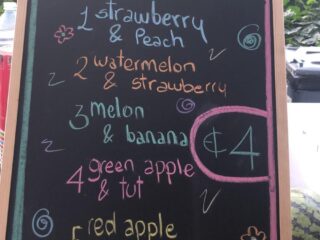 1 strawberry
& Peach
2 watermelon
& strawberry
3 melon
& banana
₵ 4
4 green apple
& tut
5 red apple